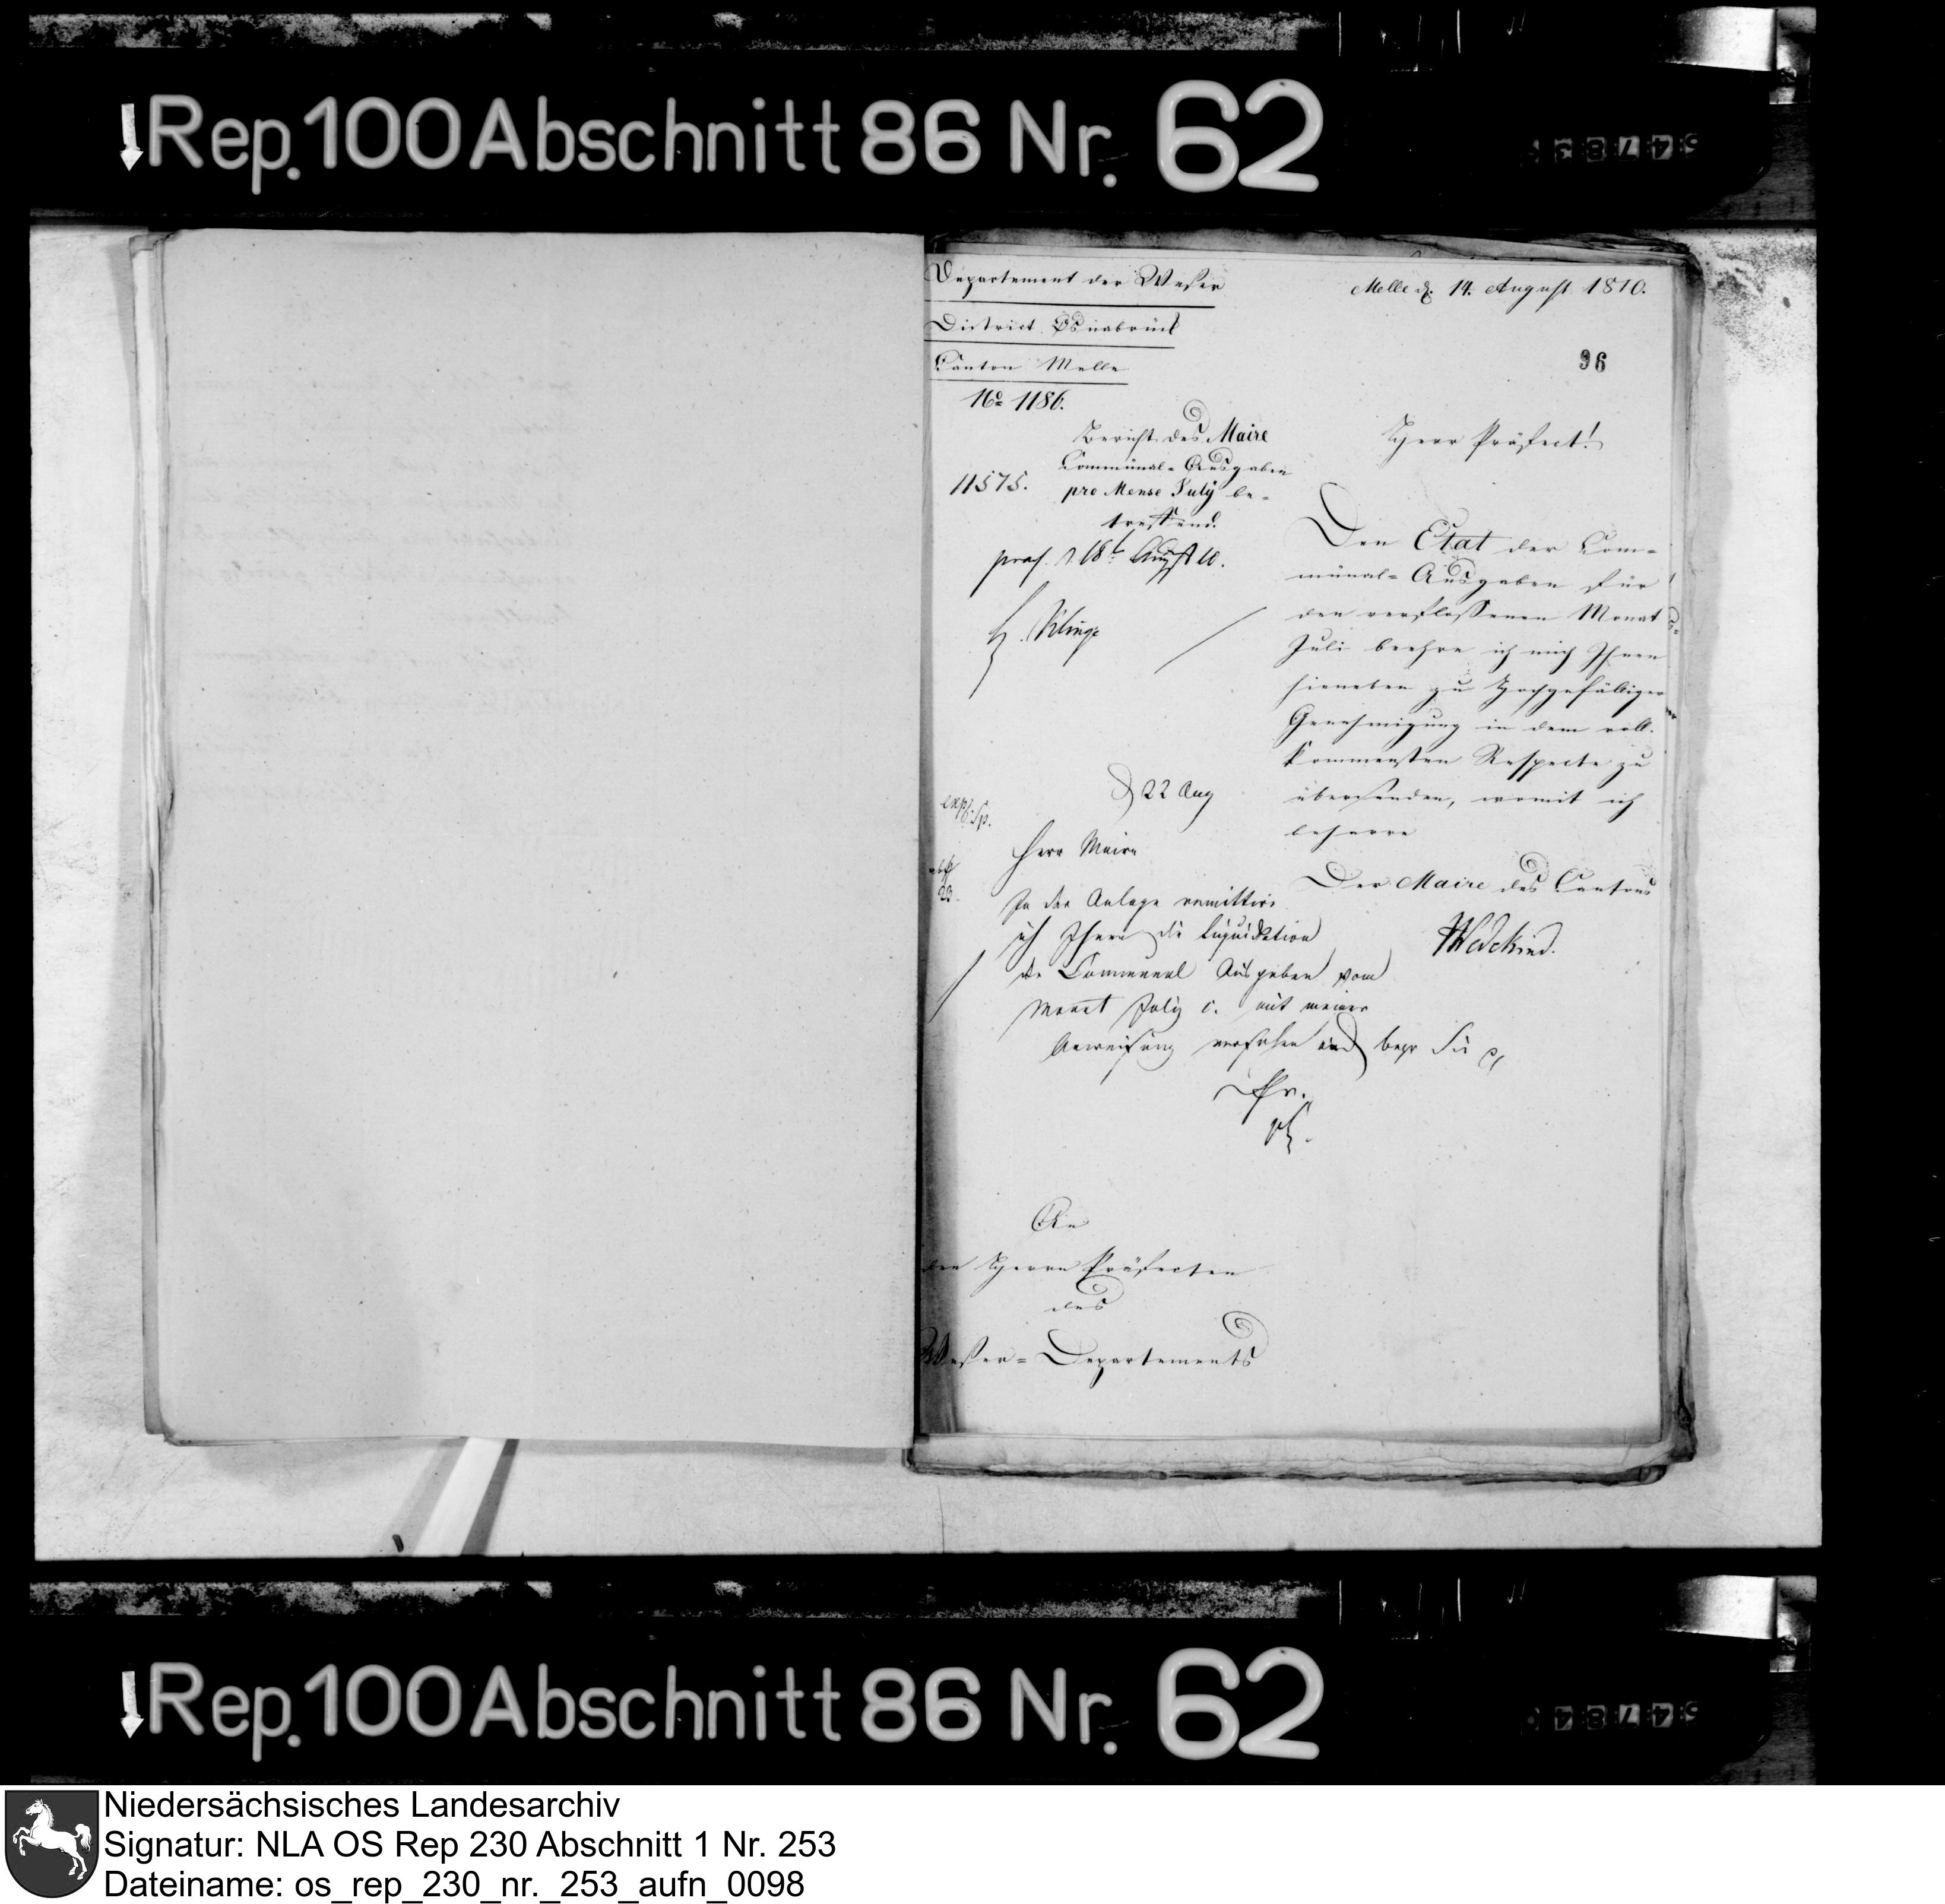 Rep. 100 Abschnitt 86 Nr. 62
Departement der Weser
District Osnabrück
Canton Melle
No 1186.
Melle d. 14. August 1810.
96
Bericht des Maire
Communal-Ausgaben
pro Mense July be-
treffend.
11575.
praes. d. 18t August 10.
Herr Präfect!
Den Etat der Com-
munal-Ausgaben für
den verflossenen Monat
Juli beehre ich mich Ihnen
hieneben zu Hochgefälliger
Genehmigung in dem voll-
kommensten Respecte zu
übersenden, womit ich
beharre
Der Maire des Cantons
Wedekind.
22 Aug
exp.
23.
Herr Maire
In der Anlage remittire
ich Ihnen die Liquidation
der Communal Ausgaben vom
Monat July c. mit meiner
Anweisung versehen und Sie
An
den Herrn Präfecten
des
Weser-Departements
Rep. 100 Abschnitt 86 Nr. 62
Niedersächsisches Landesarchiv
Signatur: NLA OS Rep 230 Abschnitt 1 Nr. 253
Dateiname: os_rep_230_nr._253_aufn_0098